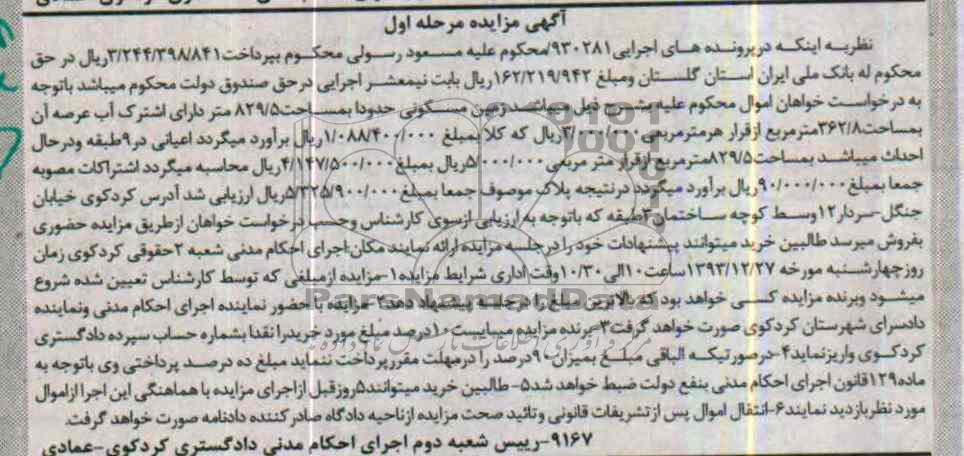 آگهی مزایده مرحله اول
نظربه اینکه درپرونده های اجرایی۹۳۰۲۸۱/محکوم علیه مسعود رسولی محکوم بپرداخت۳/۲۴۴/۳۹۸/۸۴۱ریال در حق
محکوم له بانک ملی ایران استان گلستان ومبلغ ۱۶۲/۲۱۹/۹۴۲ریال بابت نیمعشر اجرایی درحق صندوق دولت محکوم میباشد باتوجه
به درخواست خواهان اموال محکوم علیه بشرح ذیل میباشد زمین مسکونی حدودا بمساحت۸۲۹/۵ متر دارای اشترک آب عرصه آن
بمساحت۳۶۲/۸مترمربع ازقرار هرمترمربعی۳/۰۰۰/۰۰۰ریال که کلا بمبلغ ۱/۰۸۸/۴۰۰/۰۰۰ریال برآورد میگردد اعیانی در۹طبقه ودرحال
احداث میباشد بمساحت۸۲۹/۵مترمربع ازقرار متر مربعی ۵/۰۰۰/۰۰۰ریال بمبلغ۴/۱۴۷/۵۰۰/۰۰۰ریال محاسبه میگردد اشتراکات مصوبه
جمعا بمبلغ۹۰/۰۰۰/۰۰۰ریال برآورد میگردد درنتیجه پلاک موصوف جمعا بمبلغ۵/۳۲۵/۹۰۰/۰۰۰ریال ارزیابی شد آدرس کردکوی خیابان
جنگل-سردار۱۲وسط کوچه ساختمان۳طبقه که باتوجه به ارزیابی ازسوی کارشناس وحسب درخواست خواهان ازطریق مزایده حضوری
بفروش میرسد طالبین خرید میتوانند پیشنهادات خود را درجلسه مزایده ارائه نمایند مکان:اجرای احکام مدنی شعبه ۲حقوقی کردکوی زمان
روزچهارشنبه مورخه ۱۳۹۳/۱۲/۲۷ساعت۱۰الی۱۰/۳۰وقت اداری شرایط مزایده۱-مزایده ازمبلغی که توسط کارشناس تعیین شده شروع
میشود وبرنده مزایده کسی خواهد بود که بالاترین مبلغ را درجلسه پیشنهاد دهد۲-مزایده باحضور نماینده اجرای احکام مدنی ونماینده
دادسرای شهرستان کردکوی صورت خواهد گرفت۳-برنده مزایده میبایست۱۰درصد مبلغ مورد خریدرا نقدا بشماره حساب سپرده دادگستری
کردکوی واریزنماید۴-درصورتیکه الباقی مبلغ بمیزان۹۰درصد را درمهلت مقررپرداخت ننماید مبلغ ده درصد پرداختی وی باتوجه به
ماده۱۲۹قانون اجرای احکام مدنی بنفع دولت ضبط خواهد شد۵-طالبین خرید میتوانند۵روزقبل ازاجرای مزایده با هماهنگی این اجرا ازاموال
مورد نظربازدید نمایند۶-انتقال اموال پس ازتشریفات قانونی وتائید صحت مزایده ازناحیه دادگاه صادرکننده دادنامه صورت خواهد گرفت.
۹۱۶۷-رییس شعبه دوم اجرای احکام مدنی دادگستری کردکوی-عمادی